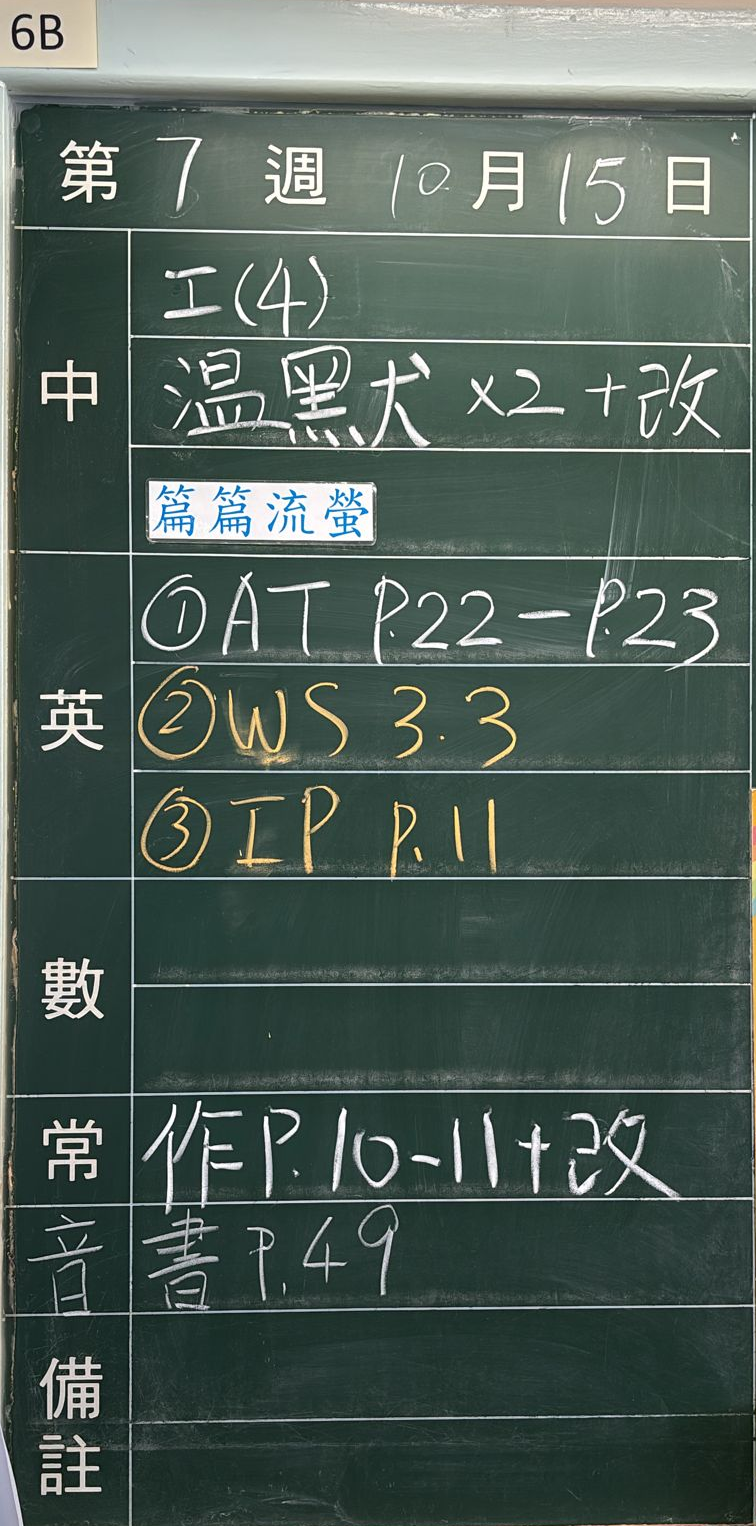 6B
第 7 週 10 月 15 日
中
工(4)
温默犬 x2 + 改
篇篇流螢
英
①AT P.22 - P.23
②WS 3.3
③IP P.11
數
常 作P.10-11+改
音 書P.49
備註